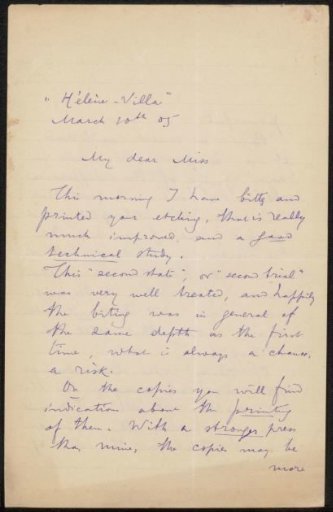 "Hélène-Villa"
March 10th 05
My dear Miss
This morning I have bitten and
printed your etching, that is really
much improved and a good
technical study.
This "second state", or "second trial"
was very well treated, and happily
the biting was in general of
the same depth as the first
time, what is always a chance,
a risk.
On the copies you will find
indication about the printing
of them. With a stronger press
than mine, the copies may be
more